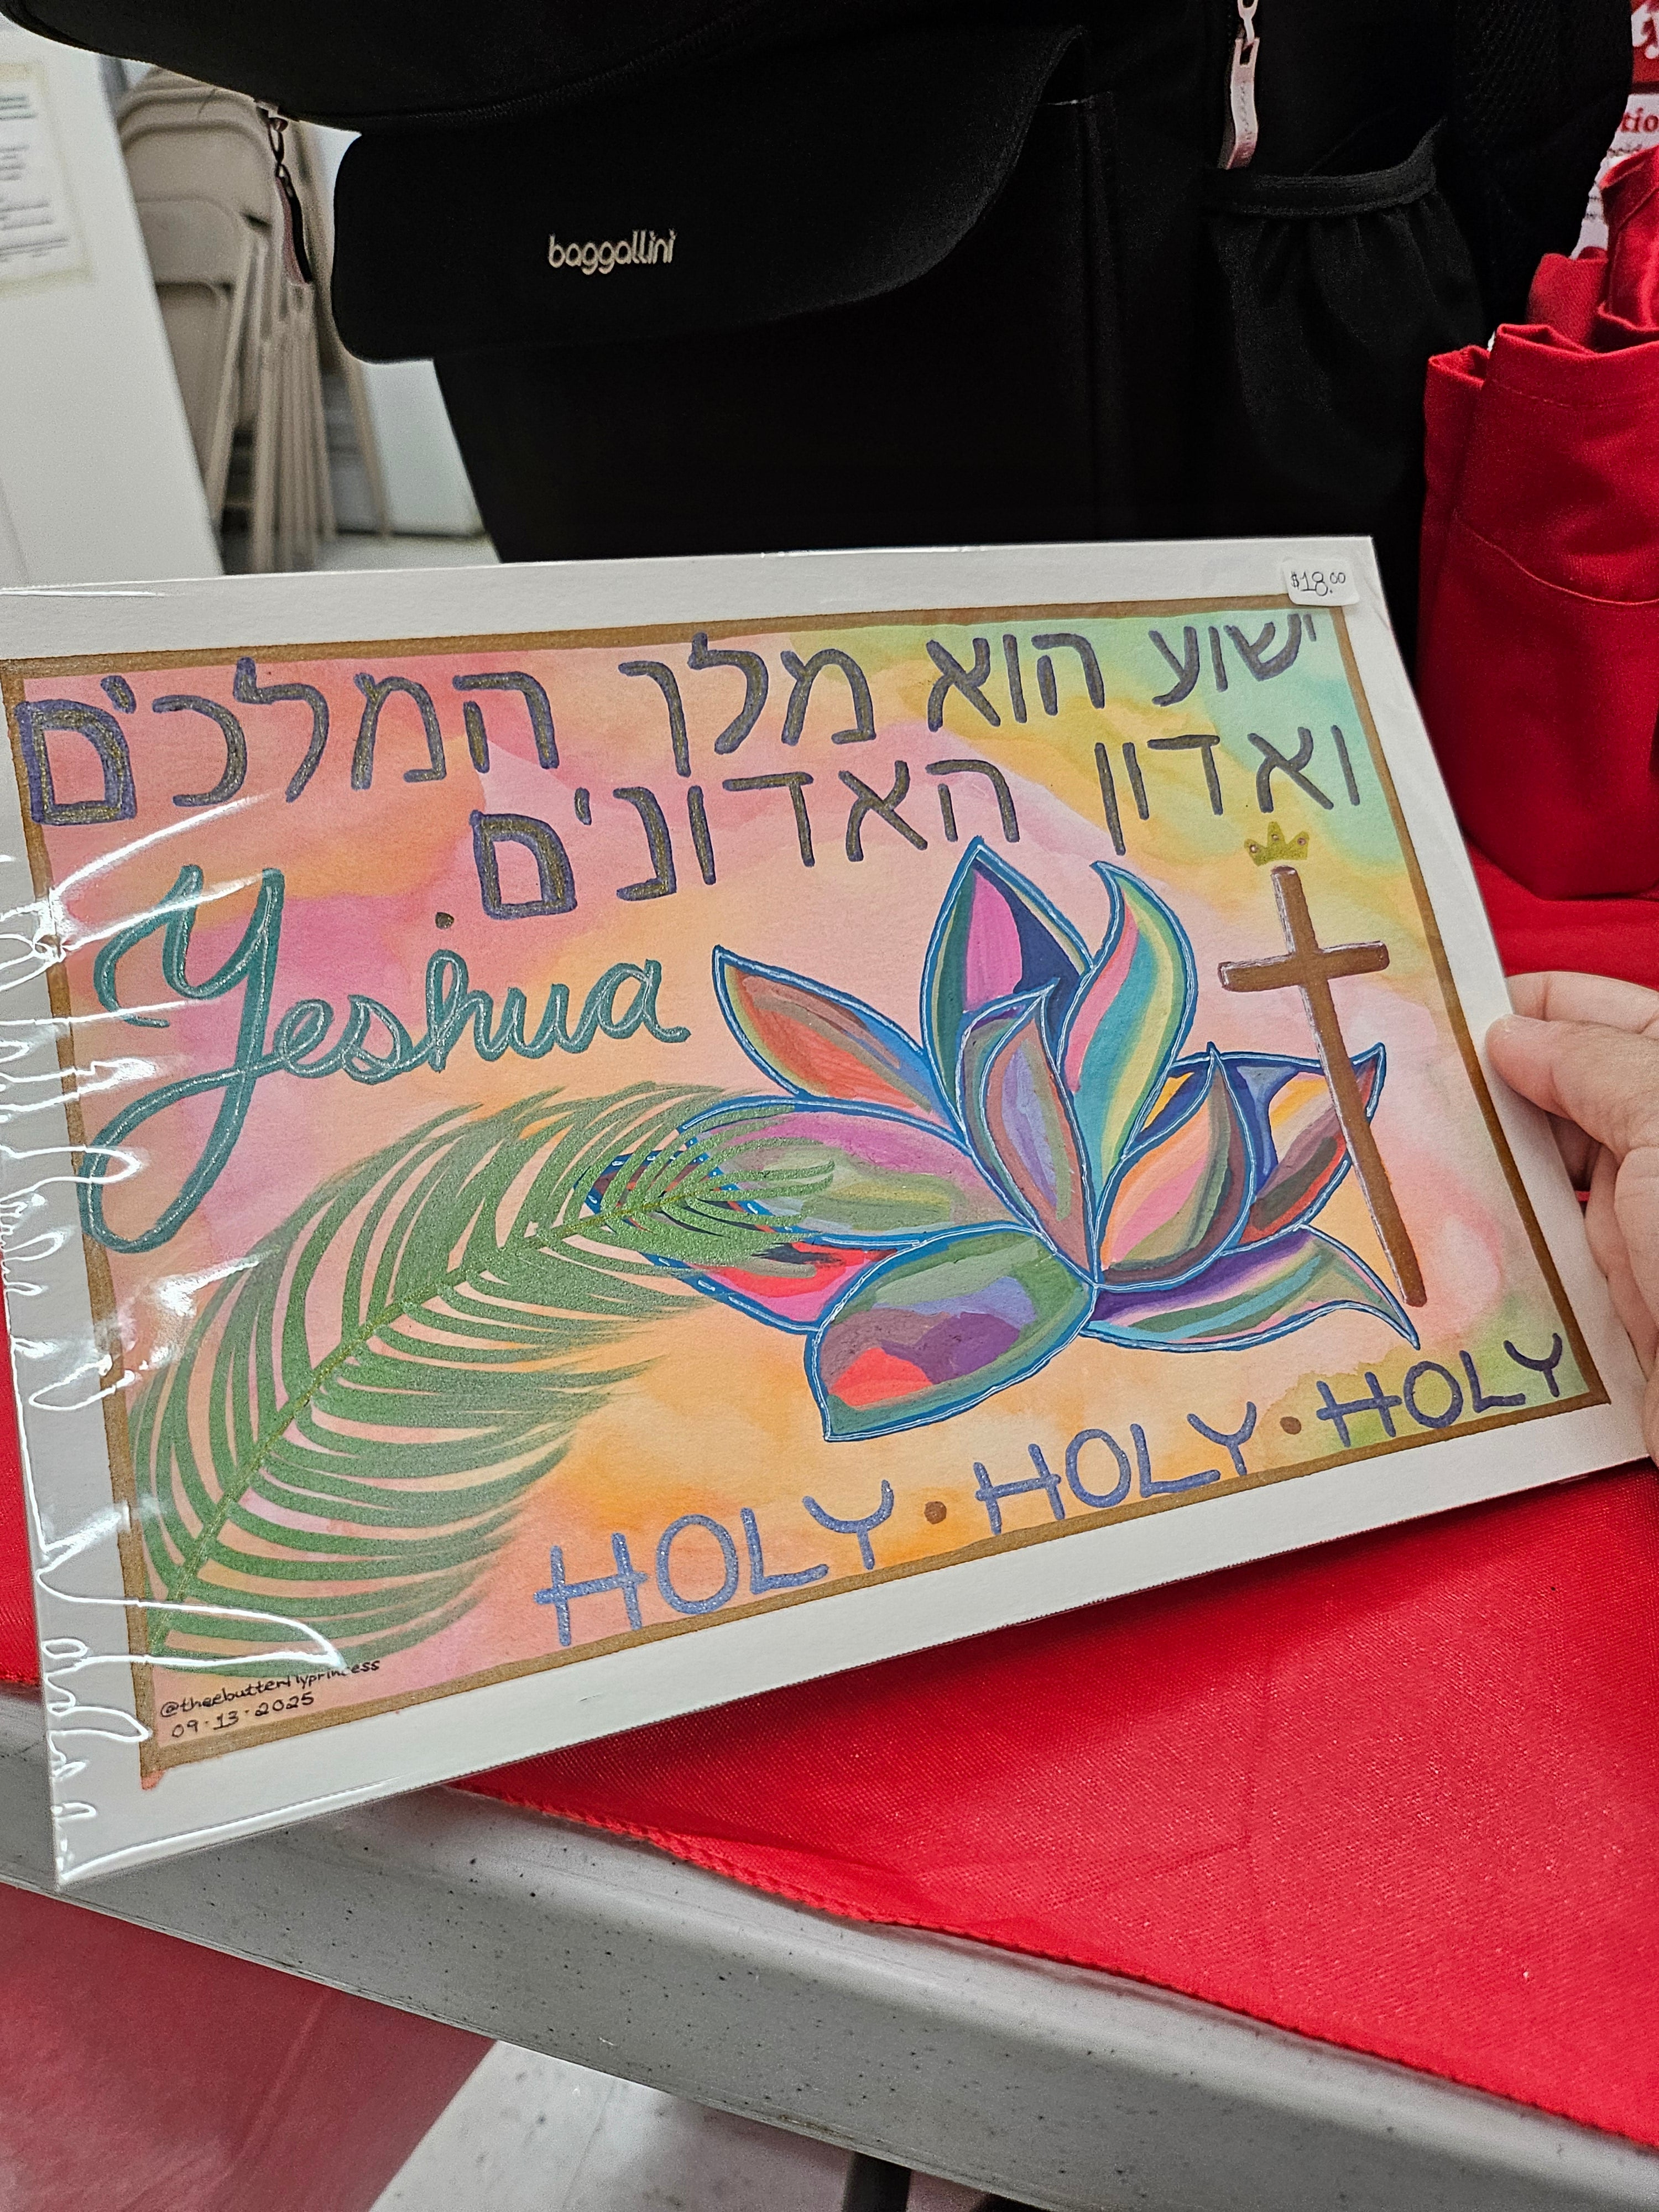 baggallini
$18.00
ישוע הוא מלך המלכים
ואדון האדונים
Yeshua
HOLY • HOLY • HOLY
@theebutterflyprincess
09-13-2025